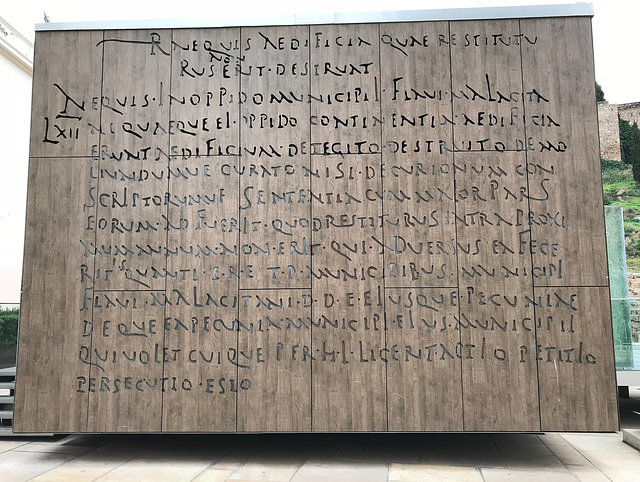 R NE QUIS AEDIFICIA QUAE RESTITUTU
NON
RUS ERIT · DESTRUAT
NE QUIS · IN OPPIDO MUNICIPII · FLAVI · MALACITA
LXII NI QUAEQUE EI · OPPIDO CONTINENTIA AEDIFICIA
ERUNT AEDIFICIUM · DETEGITO · DESTRUITO DEMO
LIUNDUMVE CURATO NISI · DECURIONUM CON
SCRIPTORUMVE SENTENTIA CUM MAIOR PARS
EORUM · ADFUERIT · QUOD RESTITURUS INTRA PROXI
MUM ANNUM · NON · ERIT · QUI · ADVERSUS EA FECE
RIT IS QUANTI · E · R · E T · P · MUNICIPIBUS · MUNICIPI
FLAVI · MALACITANI · D · D · E · EIUSQUE · PECUNIAE
DEQUE EA PECUNIA MUNICIPI · EIUS · MUNICIPII
QUI VOLET CUIQUE PER · H · L · LICEBIT · ACTIO PETITIO
PERSECUTIO · ESTO